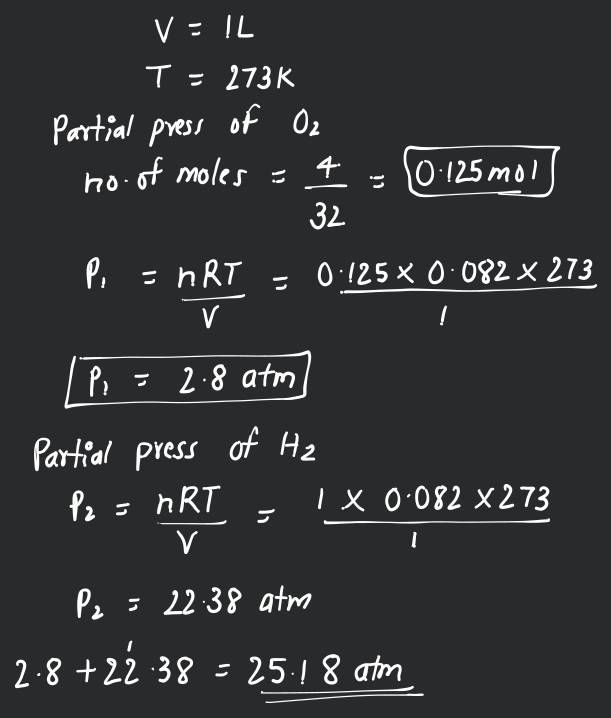 V = 1L
T = 273K
Partial press of O₂
no. of moles = 4/32 = 0.125 mol
P₁ = nRT/V = 0.125 × 0.082 × 273/1
P₁ = 2.8 atm
Partial press of H₂
P₂ = nRT/V = 1 × 0.082 × 273/1
P₂ = 22.38 atm
2.8 + 22.38 = 25.18 atm